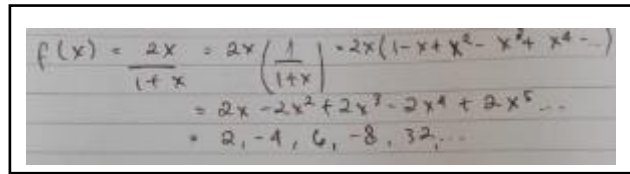 f(x) = 2x/(1+x) = 2x(1/(1+x)) = 2x(1-x+x²-x³+x⁴-...)
= 2x-2x²+2x³-2x⁴+2x⁵...
= 2, -4, 6, -8, 32,...